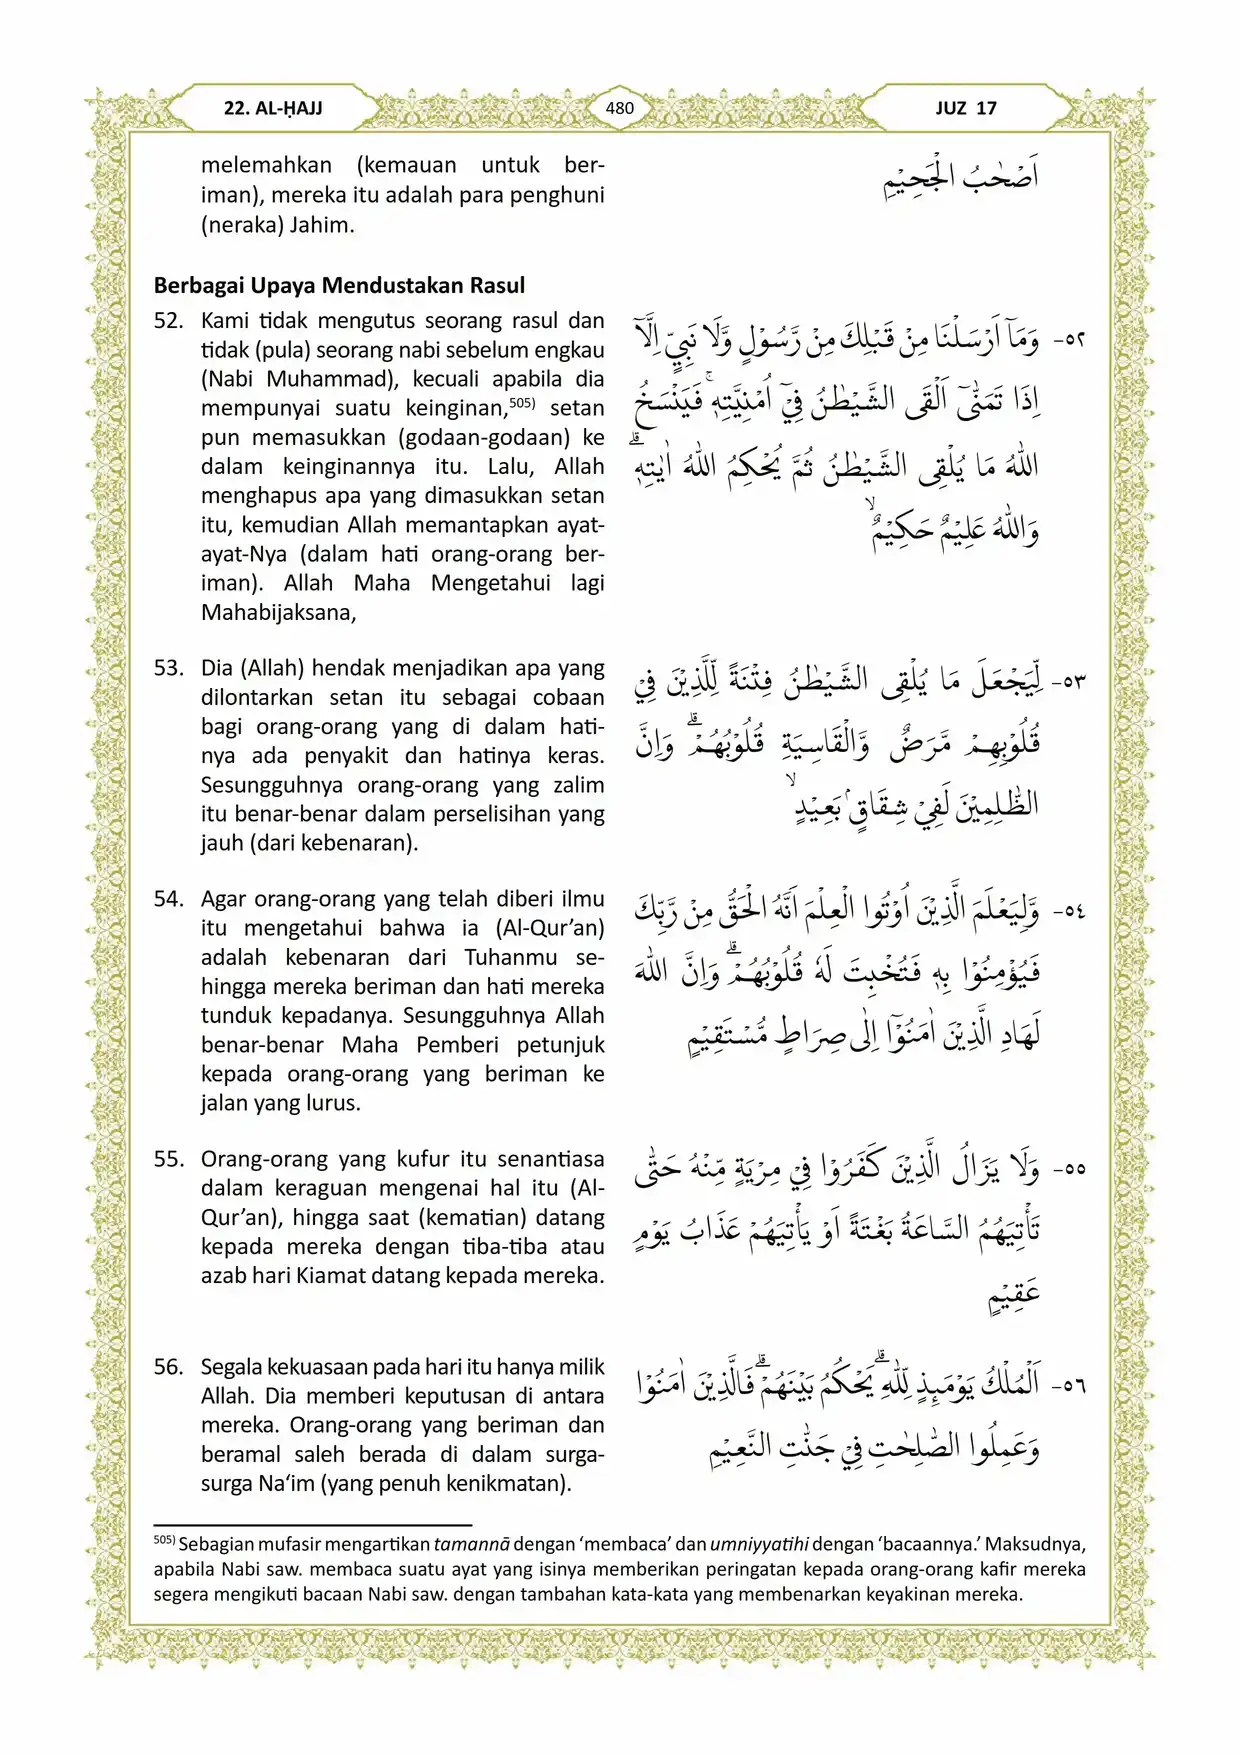 22. AL-ḤAJJ
480
JUZ 17
melemahkan (kemauan untuk ber-
iman), mereka itu adalah para penghuni
(neraka) Jahim.
اَصْحٰبُ الْجَحِيْمِ
Berbagai Upaya Mendustakan Rasul
52. Kami tidak mengutus seorang rasul dan
tidak (pula) seorang nabi sebelum engkau
(Nabi Muhammad), kecuali apabila dia
mempunyai suatu keinginan,⁵⁰⁵⁾ setan
pun memasukkan (godaan-godaan) ke
dalam keinginannya itu. Lalu, Allah
menghapus apa yang dimasukkan setan
itu, kemudian Allah memantapkan ayat-
ayat-Nya (dalam hati orang-orang ber-
iman). Allah Maha Mengetahui lagi
Mahabijaksana,
٥٢- وَمَآ اَرْسَلْنَا مِنْ قَبْلِكَ مِنْ رَّسُوْلٍ وَّلَا نَبِيٍّ اِلَّآ
اِذَا تَمَنّٰىٓ اَلْقَى الشَّيْطٰنُ فِيْٓ اُمْنِيَّتِهٖۚ فَيَنْسَخُ
اللّٰهُ مَا يُلْقِى الشَّيْطٰنُ ثُمَّ يُحْكِمُ اللّٰهُ اٰيٰتِهٖۗ
وَاللّٰهُ عَلِيْمٌ حَكِيْمٌۙ
53. Dia (Allah) hendak menjadikan apa yang
dilontarkan setan itu sebagai cobaan
bagi orang-orang yang di dalam hati-
nya ada penyakit dan hatinya keras.
Sesungguhnya orang-orang yang zalim
itu benar-benar dalam perselisihan yang
jauh (dari kebenaran).
٥٣- لِّيَجْعَلَ مَا يُلْقِى الشَّيْطٰنُ فِتْنَةً لِّلَّذِيْنَ فِيْ
قُلُوْبِهِمْ مَّرَضٌ وَّالْقَاسِيَةِ قُلُوْبُهُمْۗ وَاِنَّ
الظّٰلِمِيْنَ لَفِيْ شِقَاقٍۢ بَعِيْدٍۙ
54. Agar orang-orang yang telah diberi ilmu
itu mengetahui bahwa ia (Al-Qur’an)
adalah kebenaran dari Tuhanmu se-
hingga mereka beriman dan hati mereka
tunduk kepadanya. Sesungguhnya Allah
benar-benar Maha Pemberi petunjuk
kepada orang-orang yang beriman ke
jalan yang lurus.
٥٤- وَّلِيَعْلَمَ الَّذِيْنَ اُوْتُوا الْعِلْمَ اَنَّهُ الْحَقُّ مِنْ رَّبِّكَ
فَيُؤْمِنُوْا بِهٖ فَتُخْبِتَ لَهٗ قُلُوْبُهُمْۗ وَاِنَّ اللّٰهَ
لَهَادِ الَّذِيْنَ اٰمَنُوْٓا اِلٰى صِرَاطٍ مُّسْتَقِيْمٍ
55. Orang-orang yang kufur itu senantiasa
dalam keraguan mengenai hal itu (Al-
Qur’an), hingga saat (kematian) datang
kepada mereka dengan tiba-tiba atau
azab hari Kiamat datang kepada mereka.
٥٥- وَلَا يَزَالُ الَّذِيْنَ كَفَرُوْا فِيْ مِرْيَةٍ مِّنْهُ حَتّٰى
تَأْتِيَهُمُ السَّاعَةُ بَغْتَةً اَوْ يَأْتِيَهُمْ عَذَابُ يَوْمٍ
عَقِيْمٍ
56. Segala kekuasaan pada hari itu hanya milik
Allah. Dia memberi keputusan di antara
mereka. Orang-orang yang beriman dan
beramal saleh berada di dalam surga-
surga Na‘im (yang penuh kenikmatan).
٥٦- اَلْمُلْكُ يَوْمَىِٕذٍ لِّلّٰهِۗ يَحْكُمُ بَيْنَهُمْۗ فَالَّذِيْنَ اٰمَنُوْا
وَعَمِلُوا الصّٰلِحٰتِ فِيْ جَنّٰتِ النَّعِيْمِ
⁵⁰⁵⁾ Sebagian mufasir mengartikan tamannā dengan ‘membaca’ dan umniyyatihi dengan ‘bacaannya.’ Maksudnya,
apabila Nabi saw. membaca suatu ayat yang isinya memberikan peringatan kepada orang-orang kafir mereka
segera mengikuti bacaan Nabi saw. dengan tambahan kata-kata yang membenarkan keyakinan mereka.